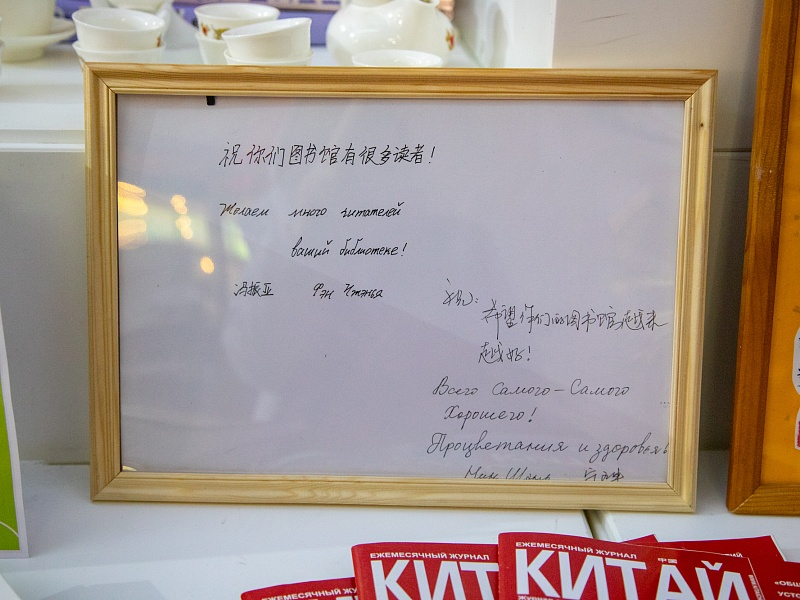 祝你们图书馆有很多读者!
Желаем много читателей
вашей библиотеке!
冯振亚 Фэн
祝:
希望你们的图书馆越来
越好!
Всего Самого-Самого
Хорошего!
Процветания и здоровья
ЕЖЕМЕСЯЧНЫЙ ЖУРНАЛ
КИТ
ЕЖЕМЕСЯЧНЫЙ ЖУРНАЛ
КИТАЙ